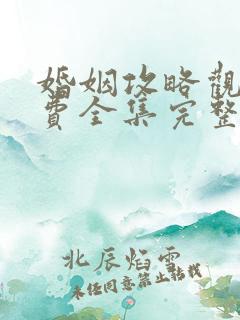 婚姻攻略觀
費全集完整
北辰焰雲
未经同意禁止转载